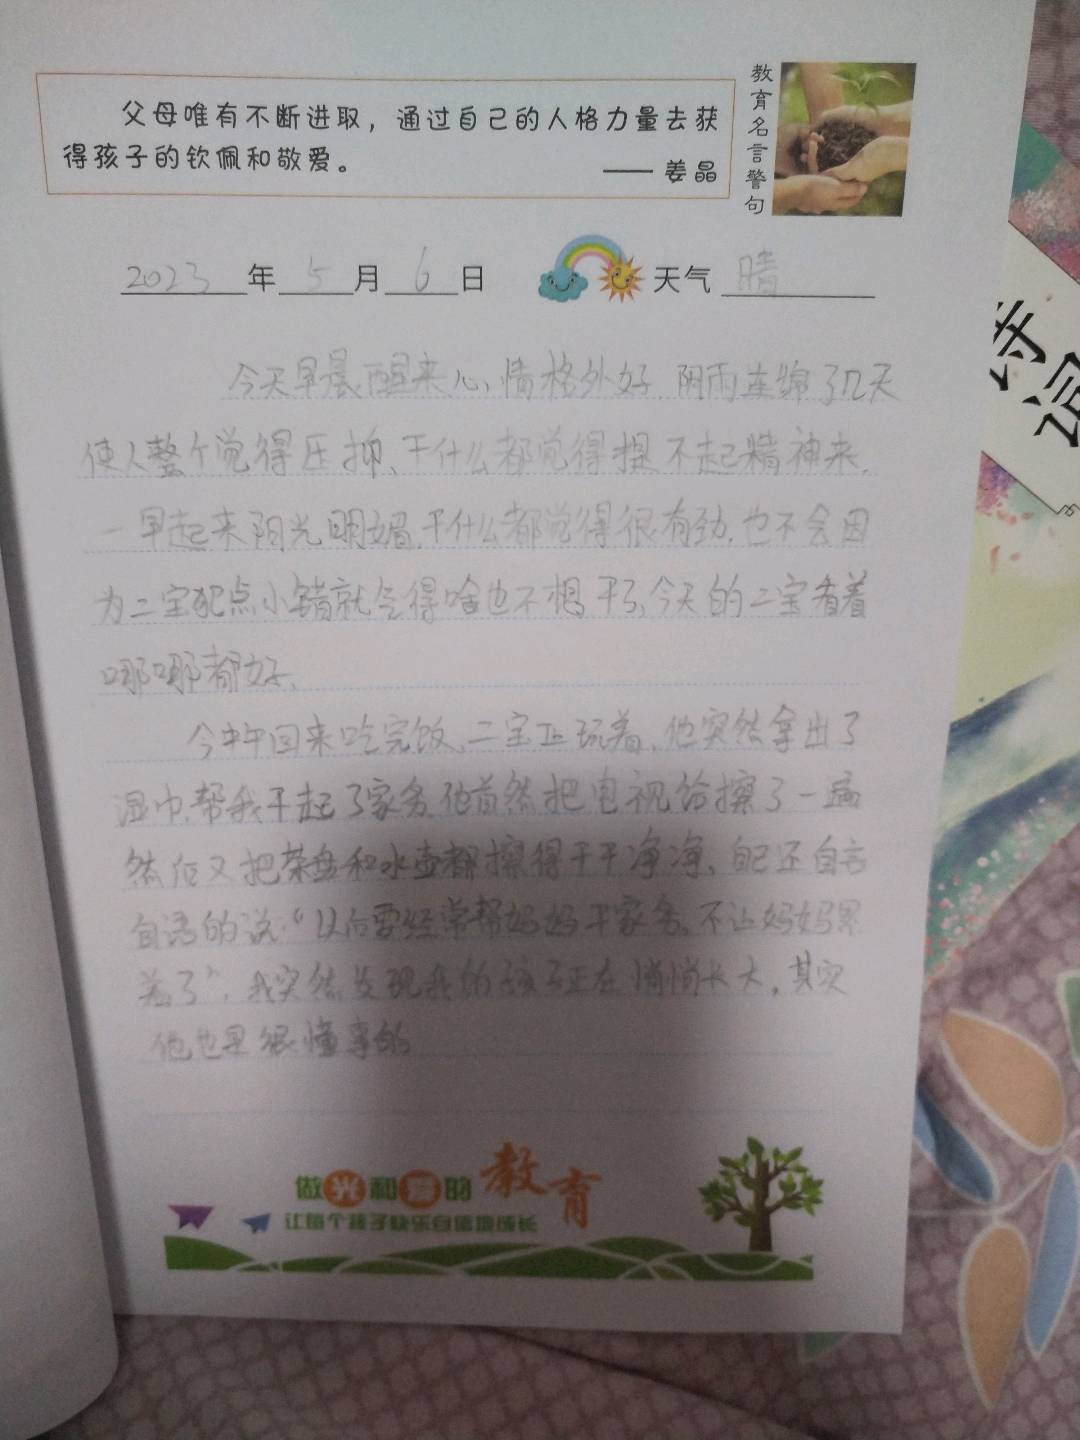 父母唯有不断进取，通过自己的人格力量去获
得孩子的钦佩和敬爱。
—— 姜晶
教育名言警句
2023年5月6日 天气 晴
今天早晨醒来心情格外好，阴雨连绵了几天
使人整个觉得压抑、干什么都觉得提不起精神来，
一早起来阳光明媚，干什么都觉得很有劲，也不会因
为二宝犯点小错就气得啥也不想干了，今天的二宝看着
哪哪都好、
今中午回来吃完饭、二宝正玩着，他突然拿出了
湿巾，帮我干起了家务，他首然把电视给擦了一遍
然后又把茶盘和水壶都擦得干干净净、自己还自言
自语的说“以后要经常帮妈妈干家务，不让妈妈累
着了”，我突然发现我的孩子正在悄悄长大，其实
他也是很懂事的
做光和爱的教育
让每个孩子快乐自信地成长
诗词